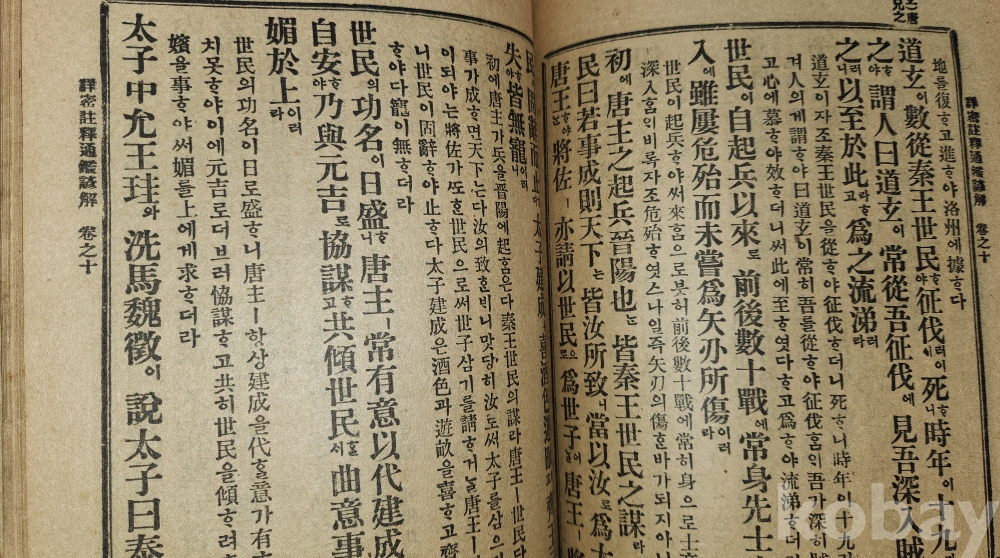 詳密註釋通鑑諺解 卷之十
地를復ᄒᆞ고進ᄒᆞ야洛州에據ᄒᆞ다
道玄이數從秦王世民ᄒᆞ야征伐이러니死ᄒᆞ니時年이十九
之ᄒᆞ야謂人曰道玄이常從吾征伐에見吾深入賊
之러以至於此라ᄒᆞ고爲之流涕러라
道玄이자조秦王世民을從ᄒᆞ야征伐ᄒᆞ더니死ᄒᆞ니時年이十九
겨人의게謂ᄒᆞ야曰道玄이常히吾를從ᄒᆞ야征伐ᄒᆞᆷ인吾가深히
고心에慕ᄒᆞ야效ᄒᆞ더니써此에至ᄒᆞ엿다ᄒᆞ고爲ᄒᆞ야流涕ᄒᆞ더
世民이自起兵以來로前後數十戰에常身先士
入에雖屢危殆而未嘗爲矢刃所傷이러라
世民이起兵ᄒᆞ야써來ᄒᆞᆷ으로붓허前後數十戰에常히身으로士
深入ᄒᆞᆷ인비록자조危殆ᄒᆞ엿스나일즉矢刃의傷ᄒᆞᆫ바가되지아
初에唐主之起兵晉陽也ᄂᆞᆫ皆秦王世民之謀라
民曰若事成則天下ᄂᆞᆫ皆汝所致니當以汝로爲
唐王ᄒᆞ야將佐ㅣ亦請以世民으로爲世子唐王ㅣ將
失ᄒᆞ야皆無寵이러니
初에唐主가兵을晉陽에起ᄒᆞᆷ은다秦王世民의謀라唐王ㅣ世民
事가成ᄒᆞ면天下ᄂᆞᆫ다汝의致ᄒᆞᆫ빈니맛당히汝로써太子를삼으
이되야ᄂᆞᆫ將佐가ᄯᅩᄒᆞᆫ世民으로써世子삼기를請ᄒᆞ거ᄂᆞᆯ唐王
니世民이固辭ᄒᆞ야止ᄒᆞ다太子建成은酒色과遊畝을喜ᄒᆞ고
ᄒᆞ야다寵이無ᄒᆞ더라
世民의功名이日盛ᄒᆞ니唐主ㅣ常有意以代建成
自安ᄒᆞ야乃與元吉로協謀고共傾世民ᄒᆞᆯᄉᆡ曲意事
媚於上이러라
世民의功名이日로盛ᄒᆞ니唐主ㅣ항상建成을代ᄒᆞᆯ意가有
치못ᄒᆞ야이에元吉로더브러協謀ᄒᆞ고共히世民을傾ᄒᆞ려
嬪을事ᄒᆞ야써媚를上에게求ᄒᆞ더라
太子中允王珪와洗馬魏徵이說太子曰秦
詳密註釋通鑑諺解 卷之十
kobay